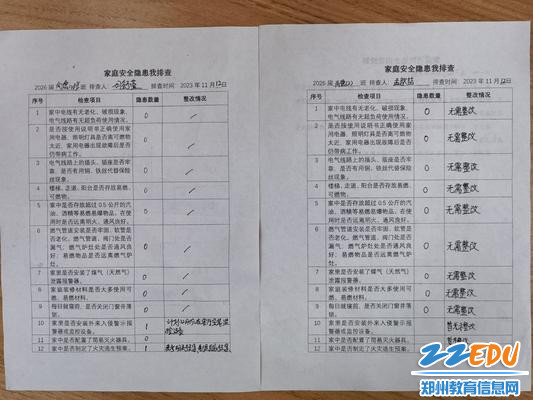 家庭安全隐患我排查
2026 届 班 排查人: 排查时间: 2023 年 11 月 12 日
序号 检查项目 隐患数量 整改情况
1 家中电线有无老化、破损现象,
电气线路有无超负荷使用情况。 0
2 是否按使用说明书正确使用家
用电器、照明灯具是否离可燃物
太近、家用电器出现故障后是否
仍带病工作。 0
3 电气线路上的插头、插座是否牢
靠、是否有用铜、铁丝代替保险
丝现象。 0
4 楼梯、走道、阳台是否存放易燃、
可燃物。 0
5 家中是否存放超过 0.5 公斤的汽
油、酒精等易燃易爆物品,在使
用时是否远离明火、火源。 0
6 燃气管道安装是否牢固、软管是
否老化、燃气管道、阀门处是否
漏气、燃气炉灶处是否通风良
好;易燃物品是否远离燃气炉
灶。 0
7 家里是否安装了煤气(天然气)
泄露报警器。 0
8 家庭装修材料是否大多使用可
燃、易燃材料。 0
9 每日就寝前,是否关闭门窗并落
锁。 0
10 家里是否安装外来入侵警示报
警器或监控设备。 1
11 家中是否配置了简易灭火器具。 1
12 家中是否制定了火灾逃生预案。 1
家庭安全隐患我排查
2026 届 班 排查人: 排查时间: 2023 年 11 月 12 日
序号 检查项目 隐患数量 整改情况
1 家中电线有无老化、破损现象,
电气线路有无超负荷使用情况。 0 无需整改
2 是否按使用说明书正确使用家
用电器、照明灯具是否离可燃物
太近、家用电器出现故障后是否
仍带病工作。 0 无需整改
3 电气线路上的插头、插座是否牢
靠、是否有用铜、铁丝代替保险
丝现象。 0 无需整改
4 楼梯、走道、阳台是否存放易燃、
可燃物。 0 无需整改
5 家中是否存放超过 0.5 公斤的汽
油、酒精等易燃易爆物品,在使
用时是否远离明火、火源。 0 无需整改
6 燃气管道安装是否牢固、软管是
否老化、燃气管道、阀门处是否
漏气、燃气炉灶处是否通风良
好;易燃物品是否远离燃气炉
灶。 0 无需整改
7 家里是否安装了煤气(天然气)
泄露报警器。 0 无需整改
8 家庭装修材料是否大多使用可
燃、易燃材料。 0 无需整改
9 每日就寝前,是否关闭门窗并落
锁。 0 无需整改
10 家里是否安装外来入侵警示报
警器或监控设备。
11 家中是否配置了简易灭火器具。
12 家中是否制定了火灾逃生预案。
22EDU
郑州教育信息网